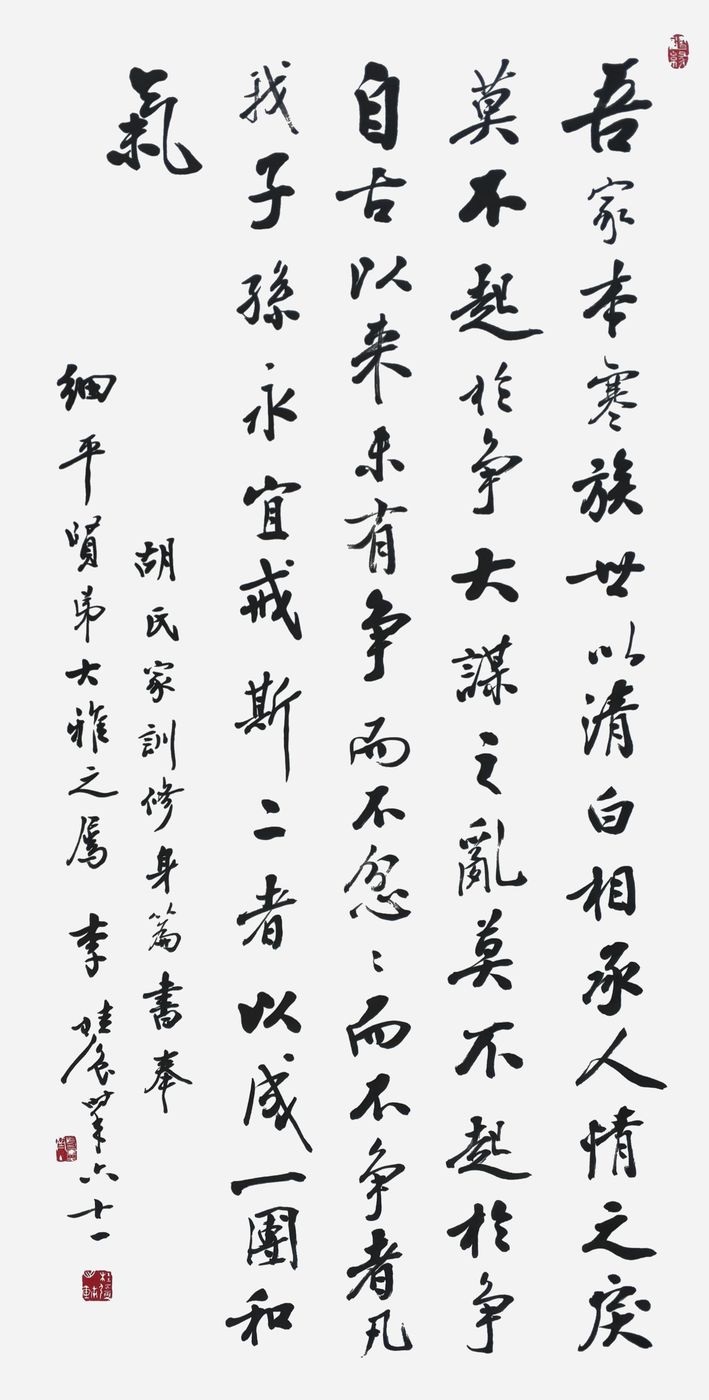 吾家本寒族世以清白相承人情之戾
莫不起於争大謀之亂莫不起於争
自古以来未有争而不忿〻而不争者凡
我子孫永宜戒斯二者以成一團和
氣
胡氏家訓修身篇書奉
細平賢弟大雅之属 李 時年六十一